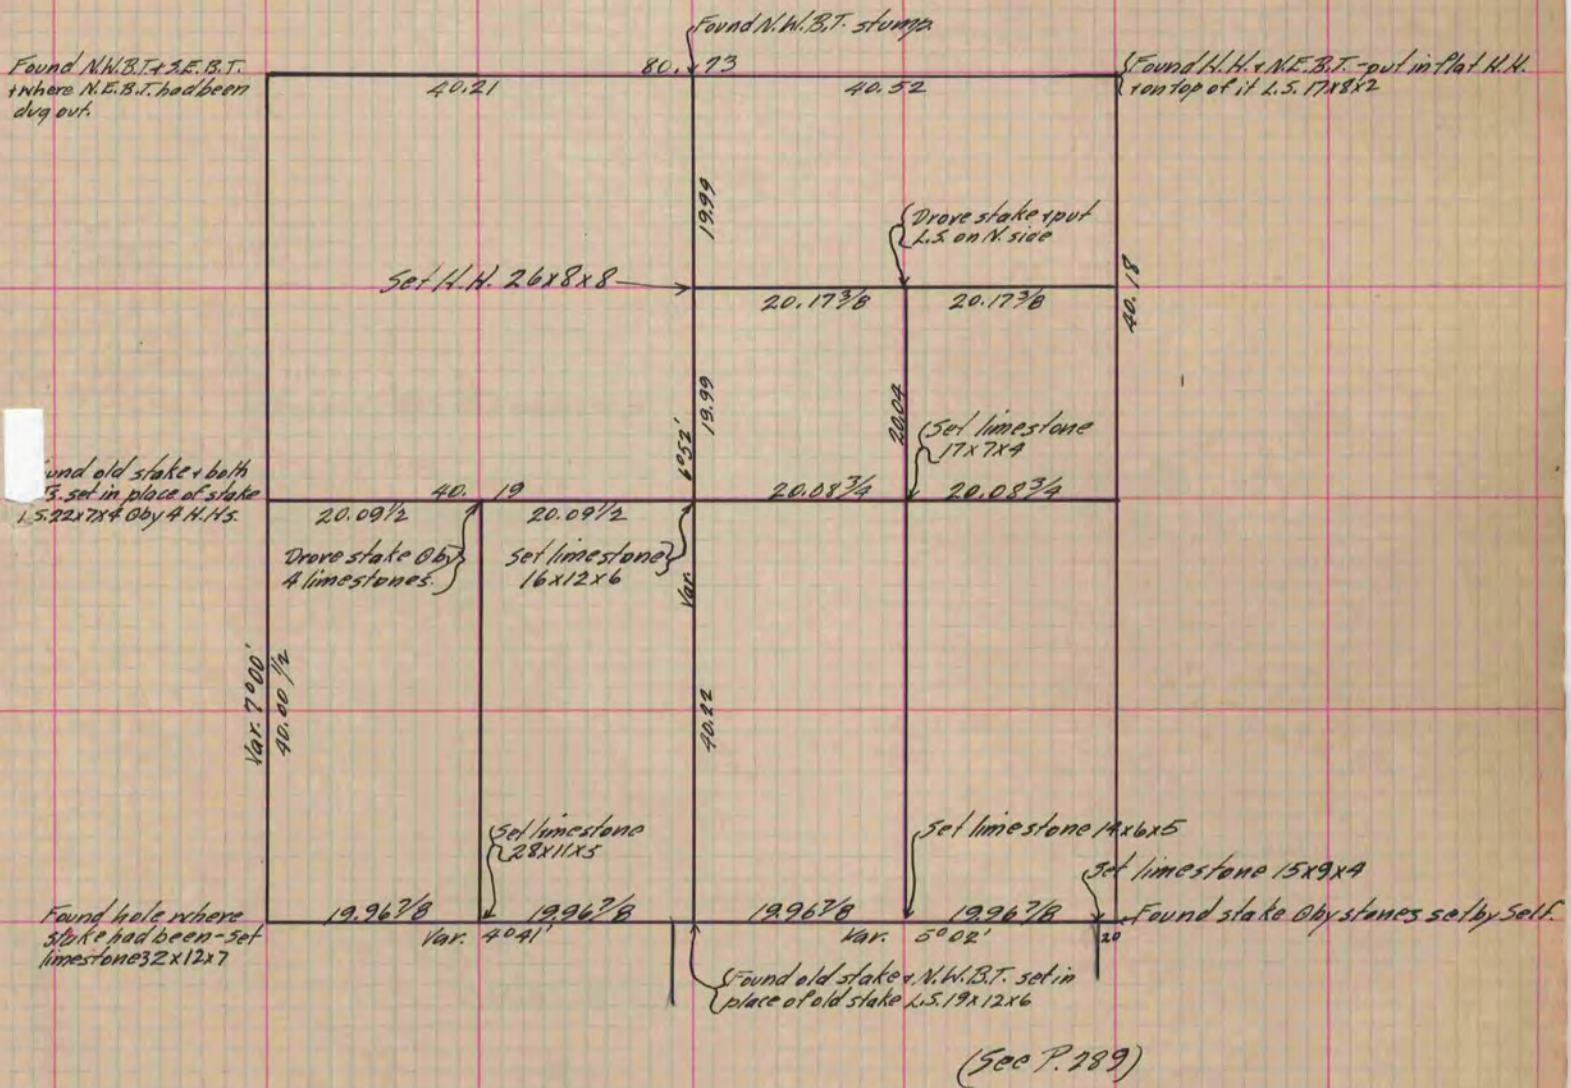 Found N.W.B.T. stump
Found N.W.B.T. & S.E.B.T.
& where N.E.B.T. had been
dug out.
80.73
40.21
40.52
Found H.H. & N.E.B.T. - put in flat H.H.
& on top of it L.S. 17x8x2
19.99
Drove stake & put
L.S. on N. side
Set H.H. 26x8x8
20.17 3/8
20.17 3/8
40.18
19.99
6°52'
20.04
Set limestone
17x7x4
und old stake & both
T's. set in place of stake
L.S. 22x7x4 ⊙ by 4 H.H's.
40.19
20.08 3/4
20.08 3/4
20.09 1/2
20.09 1/2
Drove stake ⊙ by
4 limestones.
Set limestone
16x12x6
Var.
Var. 7°00'
40.00 1/2
40.22
Set limestone
28x11x5
Set limestone 14x6x5
Set limestone 15x9x4
Found hole where
stake had been - set
limestone 32x12x7
19.96 7/8
19.96 7/8
19.96 7/8
19.96 7/8
Found stake ⊙ by stones set by Self.
Var. 4°41'
Var. 5°02'
20
Found old stake & N.W.B.T. set in
place of old stake L.S. 19x12x6
(See P. 289)